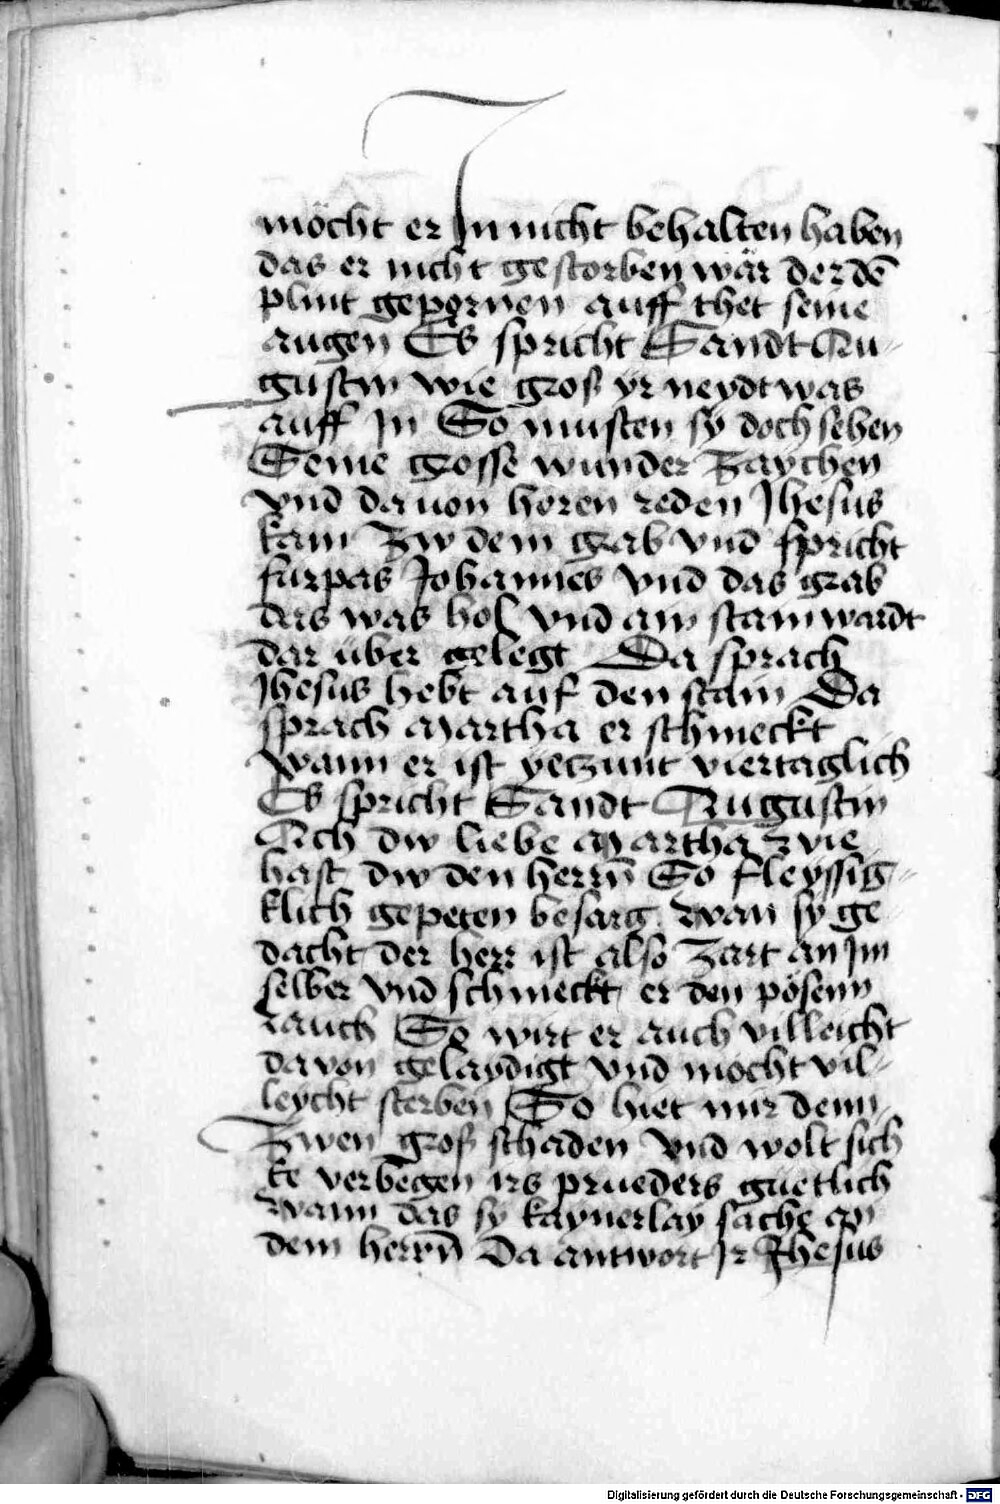 möcht er Jn nicht behalten haben
das er nicht gestorben wär der dē
plint gepornen auff thet seine
augen Es spricht Sandt Au-
gustin wie groß yr neydt was
auff Jn So musten sy doch sehen
Seine grosse wunder Zaychen
vnd da von hören reden Jhesus
kam Zw dem grab vnd spricht
furpas Johannes vnd das grab
das was hol vnd ain stain wardt
dar über gelegt Da sprach
Jhesus hebt auf den stain Da
sprach Martha er schmeckt
wann er ist yeczunt viertaglich
Es spricht Sandt Augustin
Ach dw liebe Martha wie
hast dw den herrn̄ So fleyssig-
klich gepeten besarg wan sy ge
dacht der herr ist also Zart an Jm
selber vnd schmeckt er den pösenn
rauch So wirt er auch villeicht
da von gelaydigt vnd mocht vil-
leycht sterben So hiet mir denn
Zwen groß schaden vnd wolt sich
ke verbegen irs prueders güetlich
wann das sy kaynerlay sache an
dem herrn̄ Da antwort Jr Jhesus
Digitalisierung gefördert durch die Deutsche Forschungsgemeinschaft - DFG